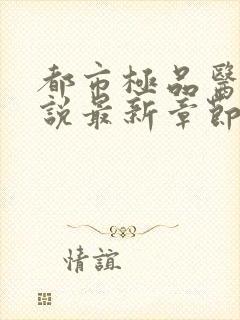 都市極品醫
說最新章節
情誼